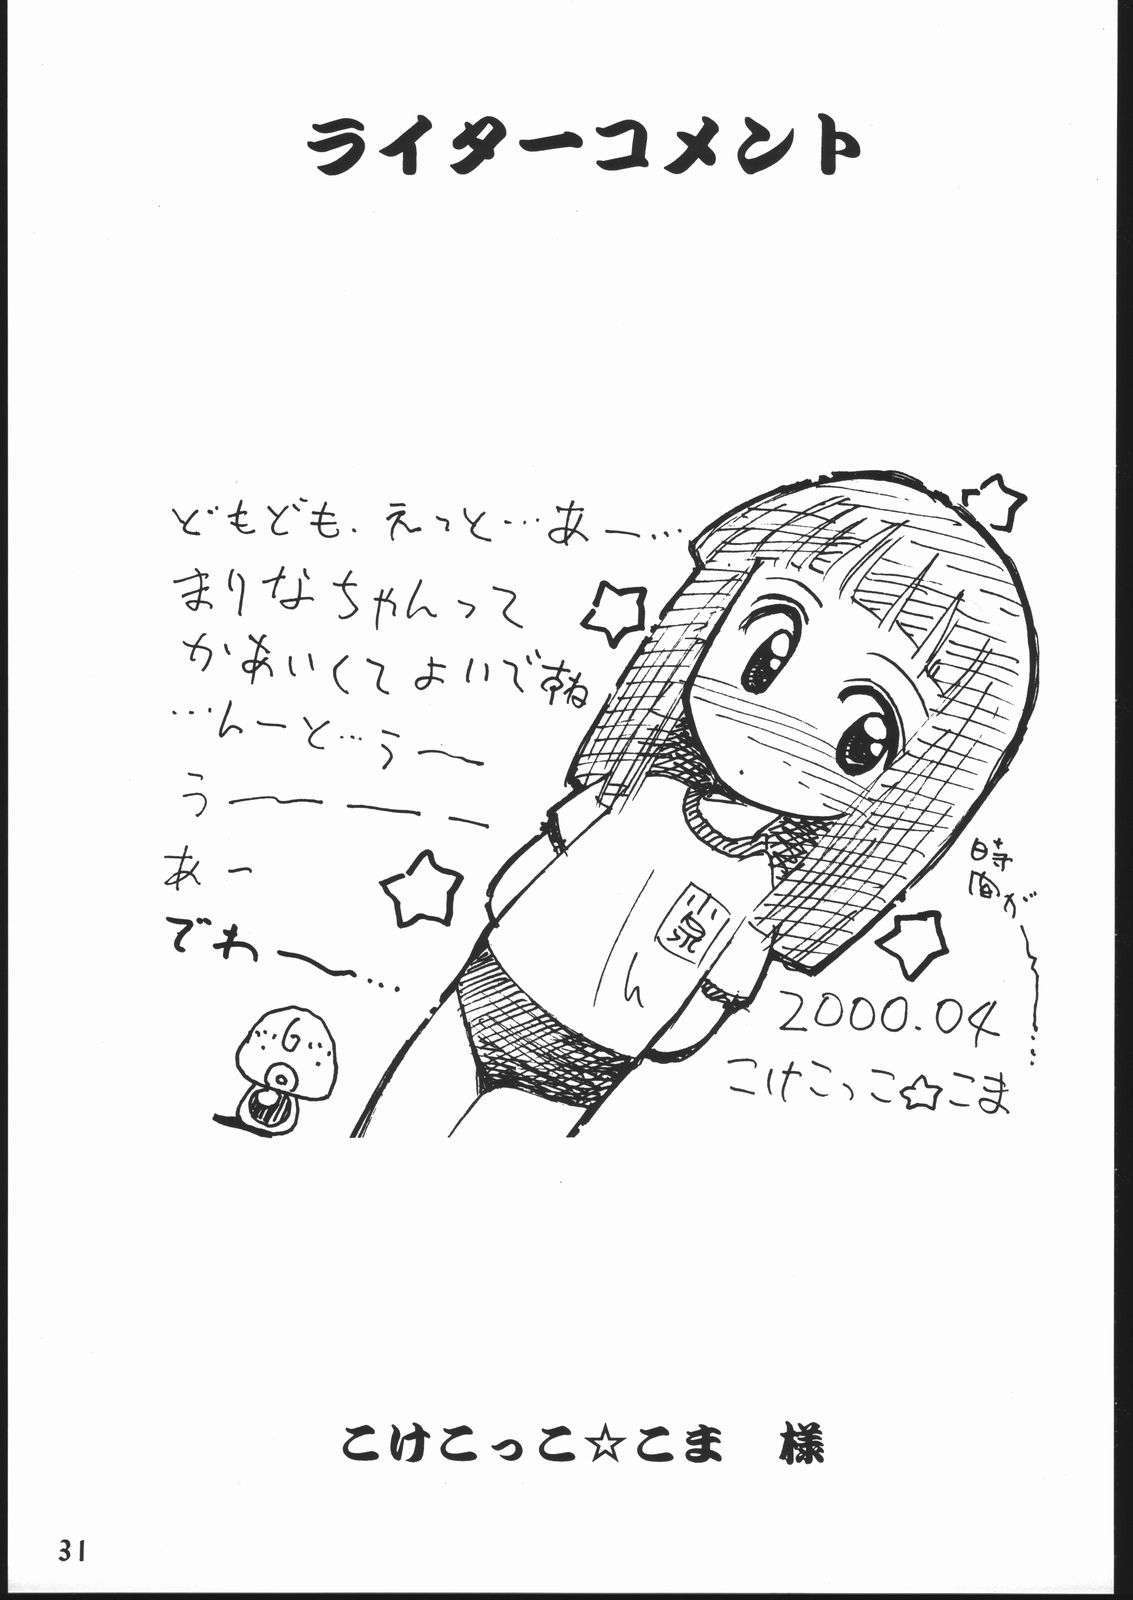 ライターコメント
どもども、えっと…あー…
まりなちゃんって
かあいくてよいですね
…んーと…うー
うーーー
あー
でわー…
G
小泉
時間がー…
2000.04
こけこっこ☆こま
こけこっこ☆こま 様
31